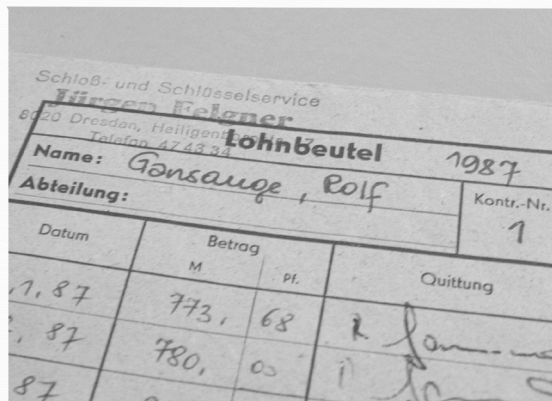 Schloß- und Schlüsselservice
Jürgen Felgner
8020 Dresden,
Telefon 47 43 34
Lohnbeutel 1987
Name: Gansauge, Rolf
Kontr.-Nr.
Abteilung:
1
Datum Betrag Quittung
M Pf.
1, 87 773, 68
87 780,
87